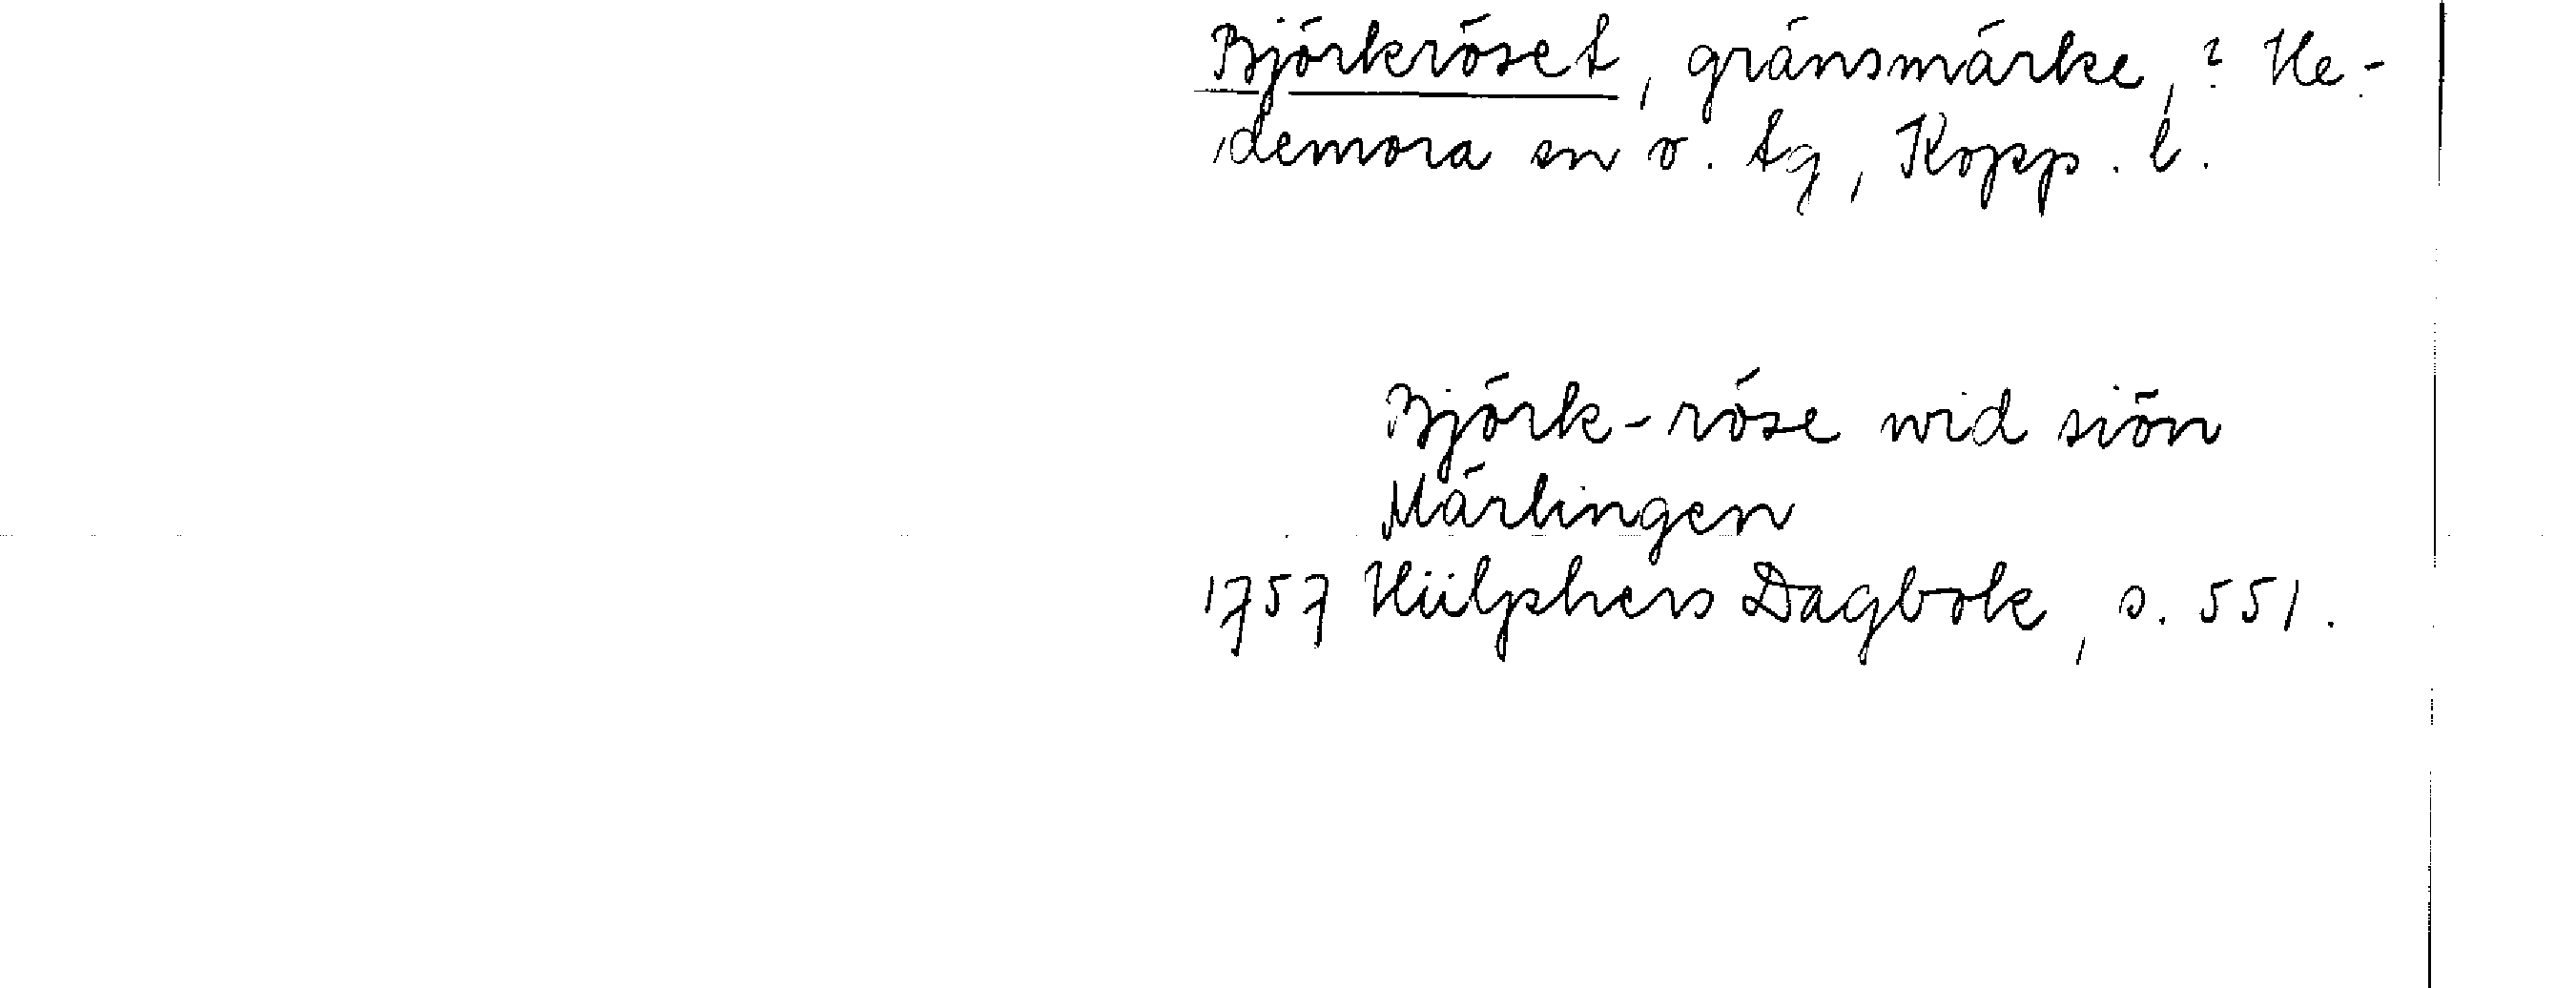 Björkröset, gränsmärke, ? He-
demora sn o. tg, Kopp. l.
Björk-röse wid siön
Märlingen
1757 Hülphers Dagbok, s. 551.